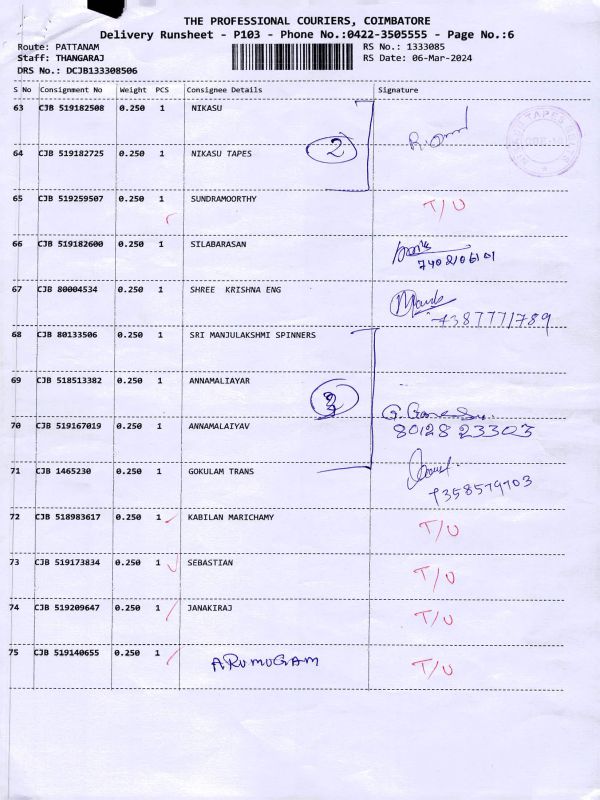 THE PROFESSIONAL COURIERS, COIMBATORE
Delivery Runsheet - P103 - Phone No.:0422-3505555 - Page No.:6
Route: PATTANAM RS No.: 1333085
Staff: THANGARAJ RS Date: 06-Mar-2024
DRS No.: DCJB133308506
S No Consignment No Weight PCS Consignee Details Signature
63 CJB 519182508 0.250 1 NIKASU
2
64 CJB 519182725 0.250 1 NIKASU TAPES
65 CJB 519259507 0.250 1 SUNDRAMOORTHY T/U
66 CJB 519182600 0.250 1 SILABARASAN
7402106101
67 CJB 80004534 0.250 1 SHREE KRISHNA ENG
68 CJB 80133506 0.250 1 SRI MANJULAKSHMI SPINNERS
69 CJB 518513382 0.250 1 ANNAMALIAYAR
3
70 CJB 519167019 0.250 1 ANNAMALAIYAV
80128 23303
71 CJB 1465230 0.250 1 GOKULAM TRANS
72 CJB 518983617 0.250 1 KABILAN MARICHAMY T/U
73 CJB 519173834 0.250 1 SEBASTIAN T/U
74 CJB 519209647 0.250 1 JANAKIRAJ T/U
75 CJB 519140655 0.250 1 ARUMUGAM T/U